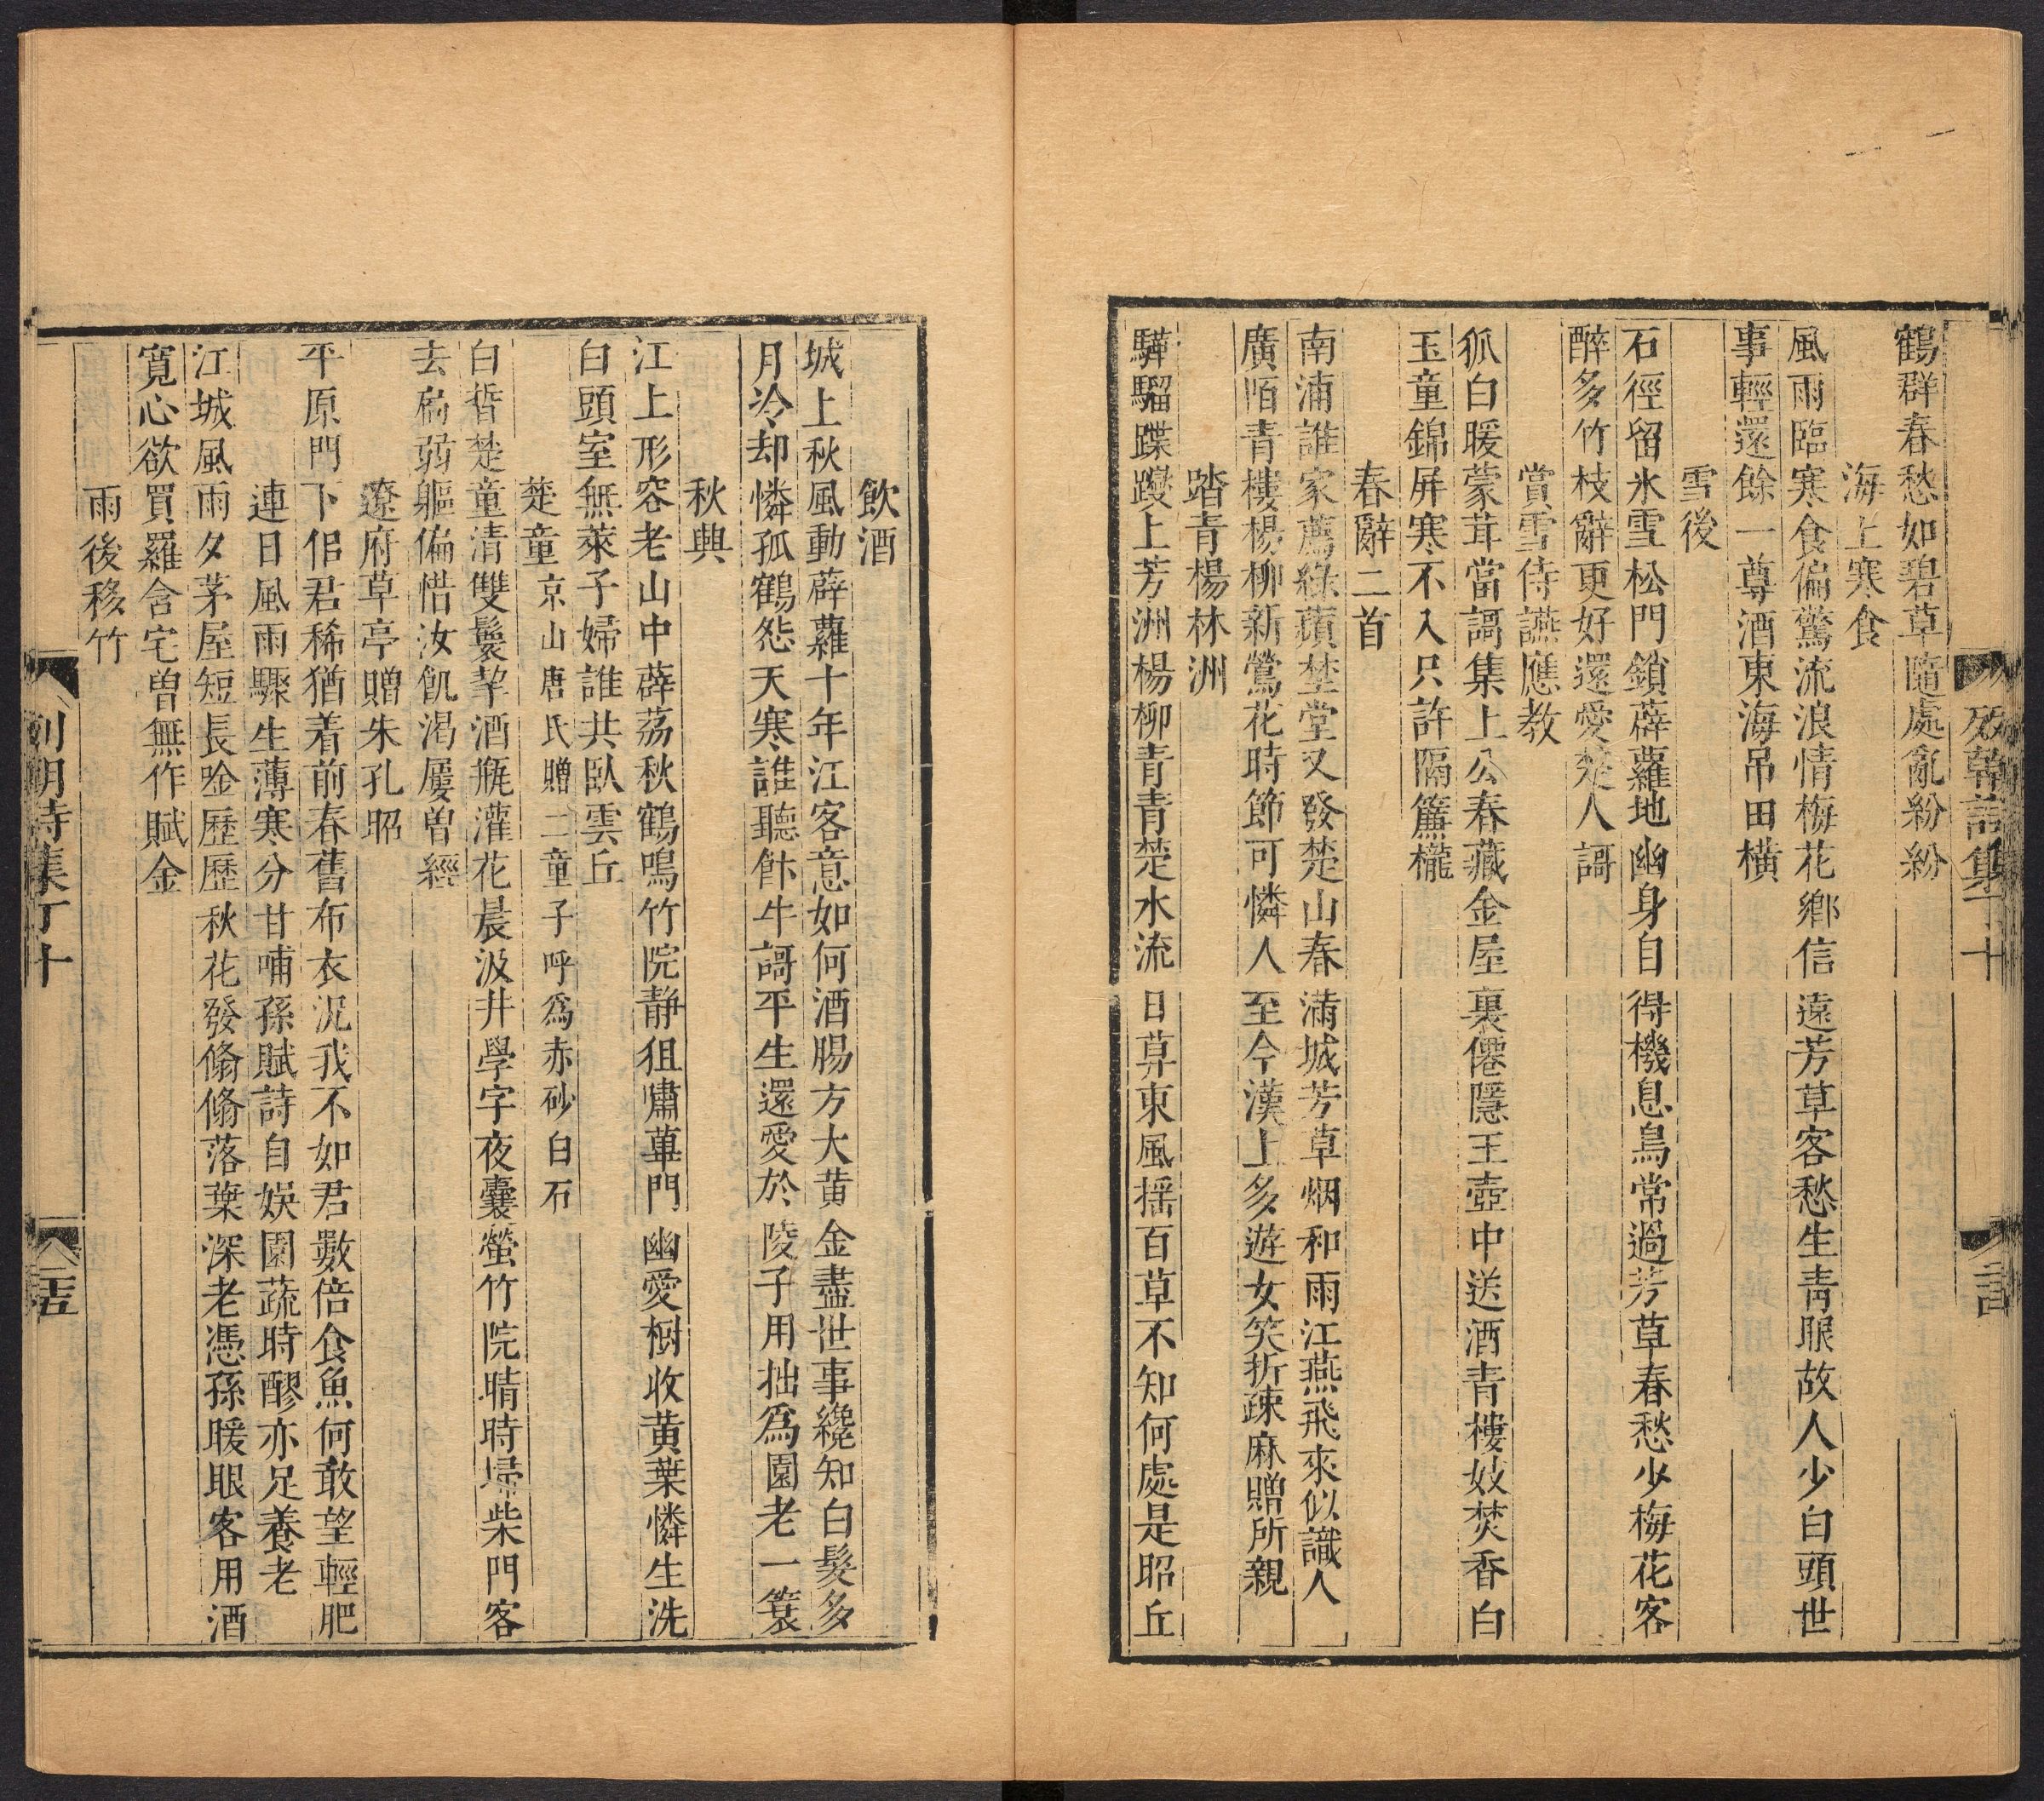 鶴群春愁如碧草隨處亂紛紛
海上寒食
風雨臨寒食偏驚流浪情梅花鄉信遠芳草客愁生靑眼故人少白頭世
事輕還餘一尊酒東海吊田橫
雪後
石徑留氷雪松門鎖薜蘿地幽身自得機息鳥常過芳草春愁少梅花客
醉多竹枝辭更好還愛楚人謌
賞雪侍讌應教
狐白暖蒙茸當謌集上公春藏金屋裏僊隱玉壺中送酒青樓妓焚香白
玉童錦屏寒不入只許隔簾櫳
春辭二首
南浦誰家薦綠蘋埜堂又發楚山春滿城芳草烟和雨江燕飛來似識人
廣陌青樓楊柳新鶯花時節可憐人至今漢上多遊女笑折疎麻贈所親
踏青楊林洲
驊騮蹀躞上芳洲楊柳青青楚水流日莫東風揺百草不知何處是昭丘
飲酒
城上秋風動薜蘿十年江客意如何酒腸方大黃金盡世事纔知白髮多
月冷却憐孤鶴怨天寒誰聽飰牛謌平生還愛於陵子用拙爲園老一簑
秋興
江上形容老山中薜荔秋鶴鳴竹院静狙嘯蓽門幽愛樹收黄葉憐生洗
白頭室無萊子婦誰共臥雲丘
楚童京山唐氏贈二童子呼爲赤砂白石
白皙楚童清雙鬟挈酒瓶灌花晨汲井學字夜囊螢竹院晴時埽柴門客
去扃弱軀偏惜汝飢渴屢曽經
遼府草亭贈朱孔昭
平原門下侶君稀猶着前春舊布衣況我不如君數倍食魚何敢望輕肥
連日風雨驟生薄寒分甘哺孫賦詩自娛園蔬時醪亦足養老
江城風雨夕茅屋短長唫歷歷秋花發翛翛落葉深老憑孫暖眼客用酒
寬心欲買羅含宅曽無作賦金
雨後移竹
列朝詩集丁十
二十五